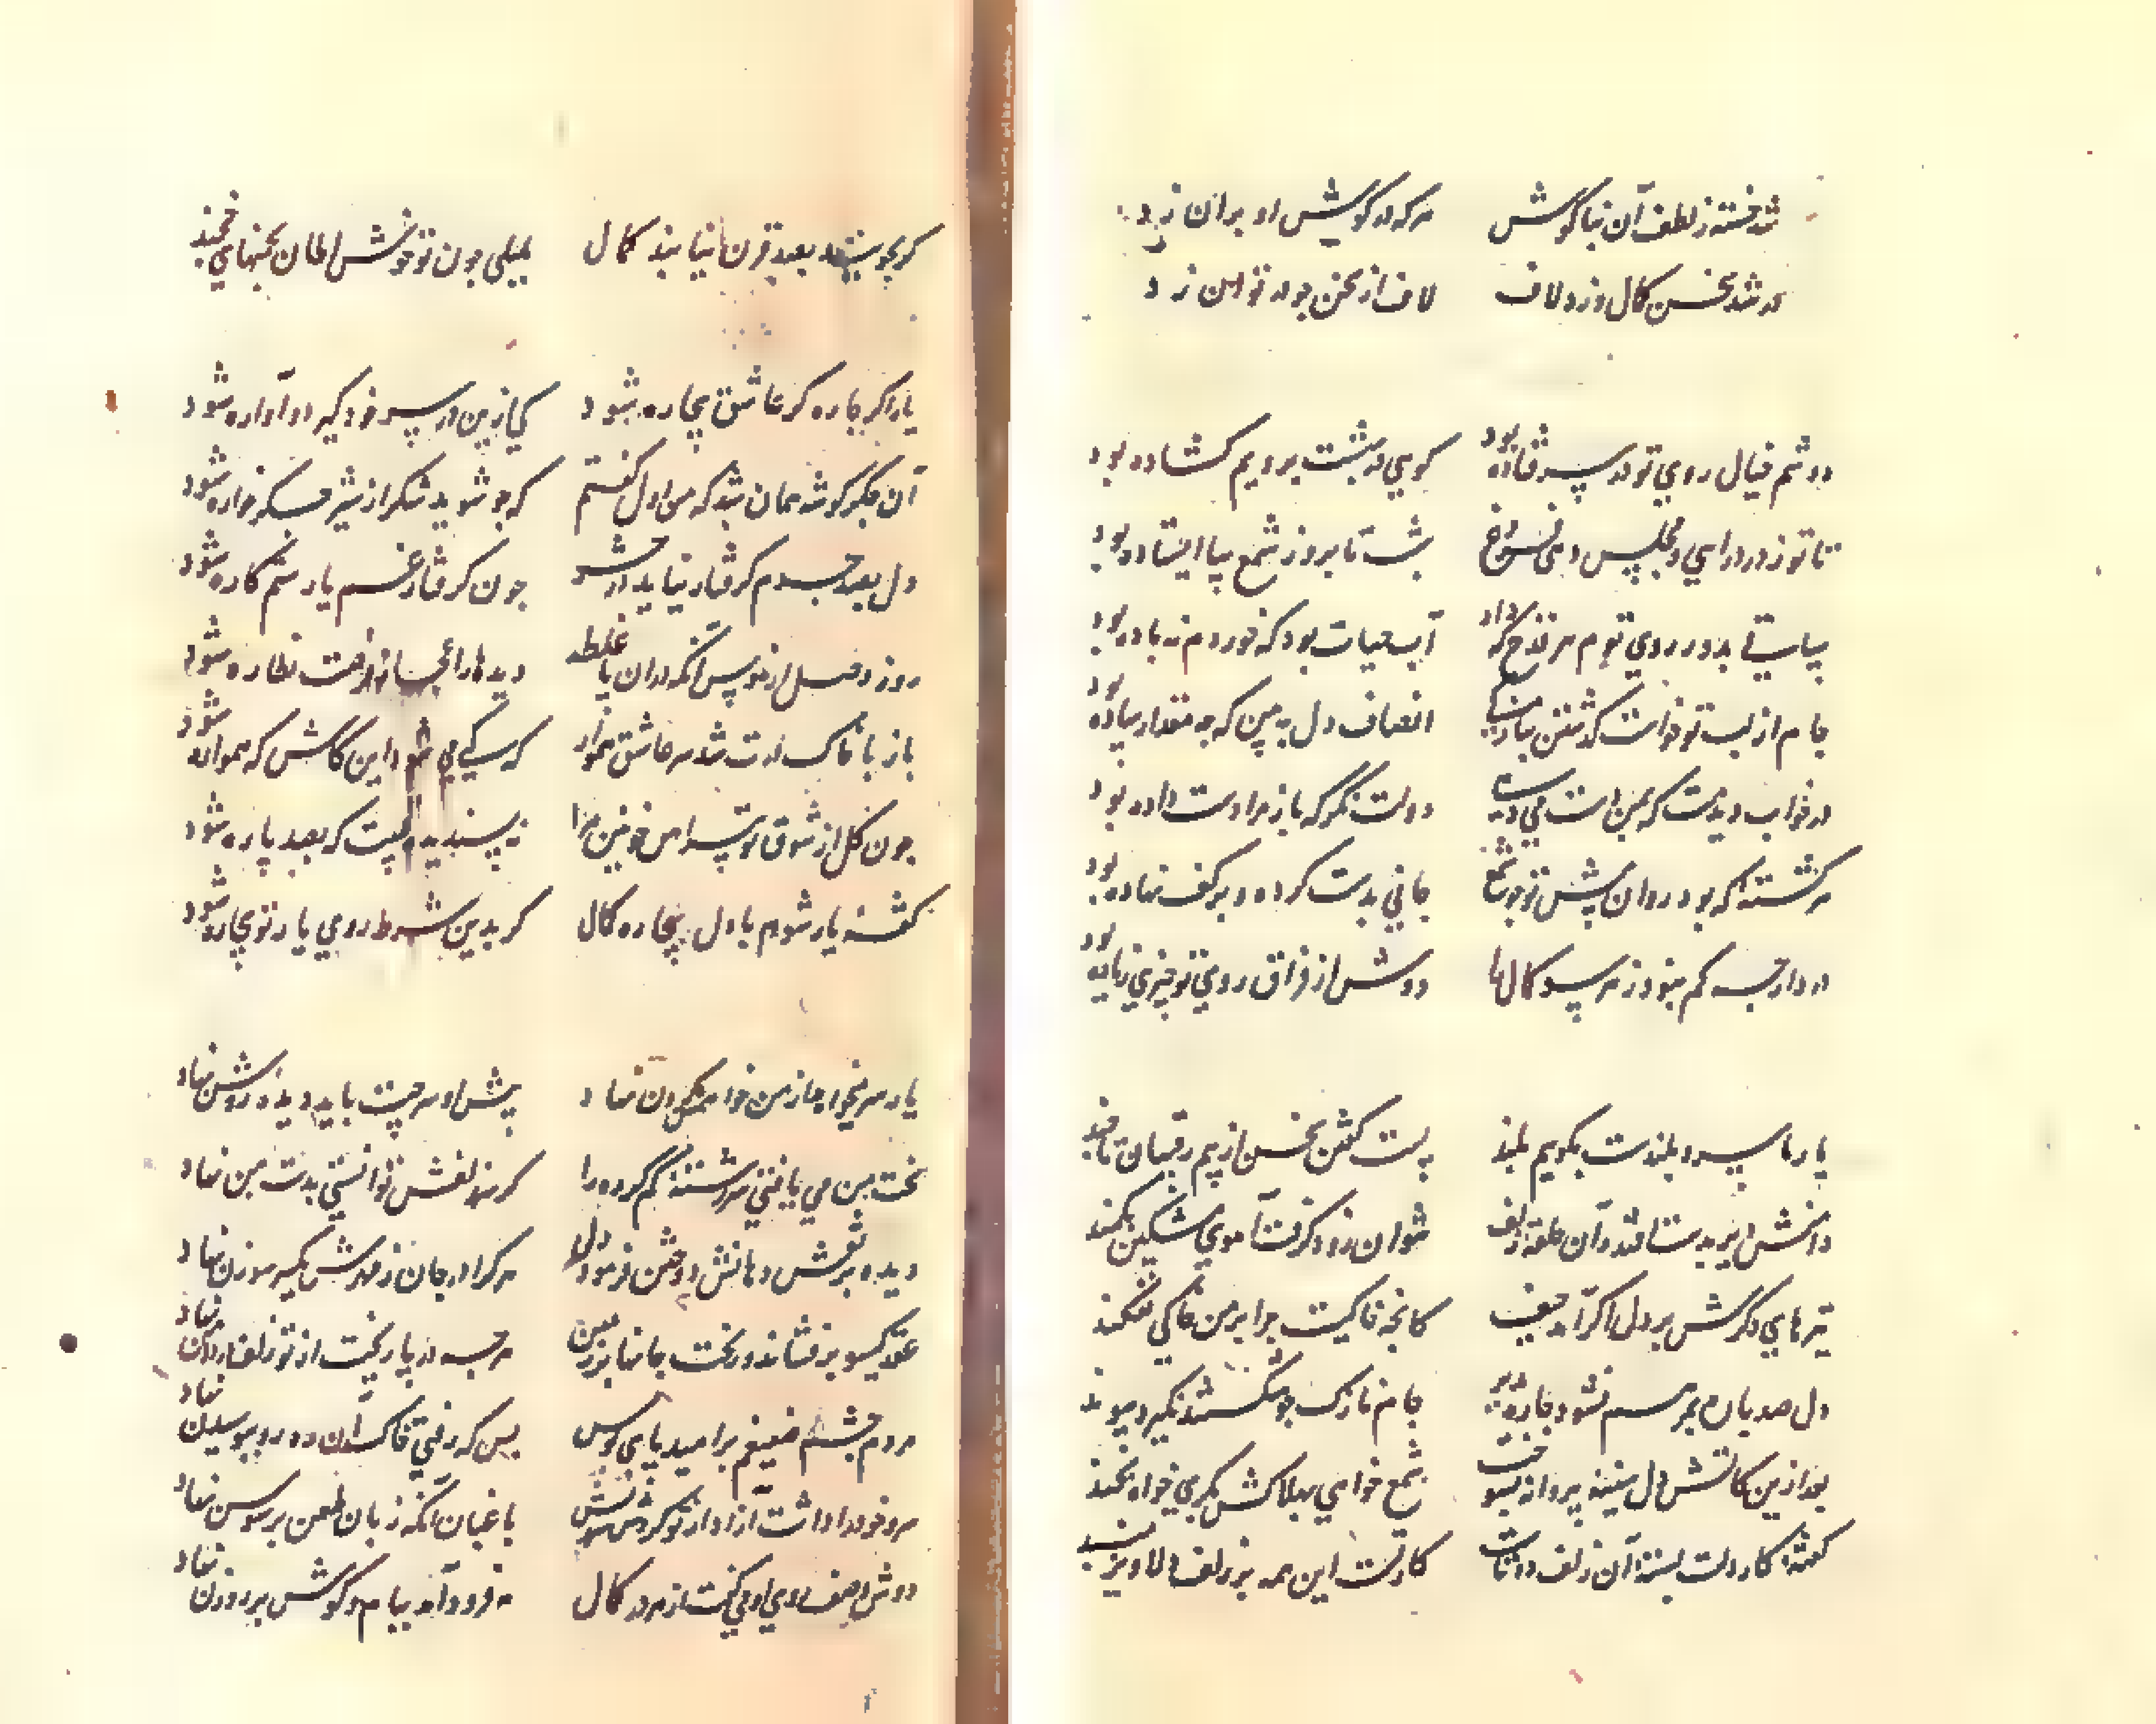 شد خسته ز لطف آن بناگوش هر که در گوش او بران زد
در شد بخسن کمال و زد لاف لاف از سخن چو در توان زد
دوشم خیال روی تو در سر فتاده بود گویی در بهشت برویم گشاده بود
تا تو ز در درآیی و مجلس دهی فروغ شب تا بروز شمع بپا ایستاده بود
بی روی تو آب حیات بود که خوردم نه باده بود
جام از لبت تو خواست گذشتن انصاف دل به بین که چه مقدار ساده بود
در خواب دیدمت که بمن دست می دهی دولت نگر که باز مرا دست داده بود
سرگشته که بود روان پیش تو چو شمع جانی بدست کرده و بر کف نهاده بود
درد ارچه کم نبود ز هر سو کمال را دوش از فراق روی تو چیزی زیاده بود
یار ما سرو بلندست بگوییم بلند پست گفتن سخن از بیم رقیبان تا چند
دانش پیر بدست آن حلقه زلف نتوان زود گرفت آهوی مشکین بکمند
تیرهای دگرش بر دل اگر آید حیف کانچه خاکیست چرا بر من خاکی نفکند
دل صد پاره بمرهم نشود چاره پذیر جام نازک چو شکستند نگیرد پیوند
بعد ازین کاتش دل سینه پروانه بسوخت شمع خواهی بهلاکش گری خواه بخند
گفته‌ کار دلت بسته آن زلف دوتاست کارتست این همه بر زلف دلاویز مبند
گر بجویند بصد قرن نیابند کمال بلبلی چون تو خوش الحان بچمنهای خجند
یار اگر چاره گر عاشق بیچاره شود کی ازین در بسر خود گیرد و آواره شود
آن جگرگوشه همان شد که من اول گفتم که چو شوید شکر از شیر جگرخواره شود
دل بصد جرم گرفتار نیاید در حشر چون گرفتار غم یار ستمکاره شود
روز وصل از هوس آنکه دران پا غلطد دیدها را نچسان فرصت نظاره شود
باز با خاک درت شد سر عاشق هموار که سگی می شود این کاش که همواره شود
چون گل از شوق تو پیراهن خونین مرا نه پسندیده‌ست که بصد پاره شود
گفته یار شوم با دل بیچاره کمال گر بدین شرط روی یار تو بیچاره شود
یار سر میخواهد از من خواهمش گردن نهاد پیش او هر چیست باید دیده روشن نهاد
بخت من می یافتی سررشته گم کرده را گر سر زلفش توانستی بدست من نهاد
دیده بر نقش دهانش دوختن فرمود دل هر کرا در جان ز قدرش یکسر سوزن نهاد
عقد گیسو برفشاند و ریخت جانها بر زمین هر چه در پا ریخت از تو زلف در دامن نهاد
مردم چشم ضعیفم بر امید پای بوس بس که رفتی خاک آن در رو ببوسیدن نهاد
سرو خود را داشت آزاد از تو کردش سرزنش باغبان آنکه زبان طعن بر سوسن نهاد
دوش وصف روی او می گفت از هر در کمال مه فرود آمد ببام و گوش بر روزن نهاد